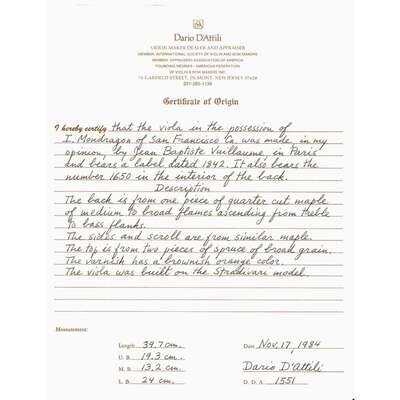 Dario D'Attili
VIOLIN MAKER DEALER AND APPRAISER
MEMBER, INTERNATIONAL SOCIETY OF VIOLIN AND BOW MAKERS
MEMBER, APPRAISERS ASSOCIATION OF AMERICA
FOUNDING MEMBER - AMERICAN FEDERATION
OF VIOLIN & BOW MAKERS INC.
DUMONT, NEW JERSEY
Certificate of Origin
I hereby certify that the viola in the possession of
I. Mondragon of San Francisco Ca. was made, in my
opinion, by Jean Baptiste Vuillaume, in Paris
and bears a label dated 1842. It also bears the
number 1650 in the interior of the back.
Description
The back is from one piece of quarter cut maple
of medium to broad flames ascending from treble
to bass flanks.
The sides and scroll are from similar maple.
The top is from two pieces of spruce of broad grain.
The varnish has a brownish orange color.
The viola was built on the Stradivari model.
Measurement:
Length 39.7 cm. Date Nov. 17, 1984
U. B. 19.3 cm.
M. B. 13.2 cm. Dario D'Attili
L. B. 24 cm. D. D. A. 1551